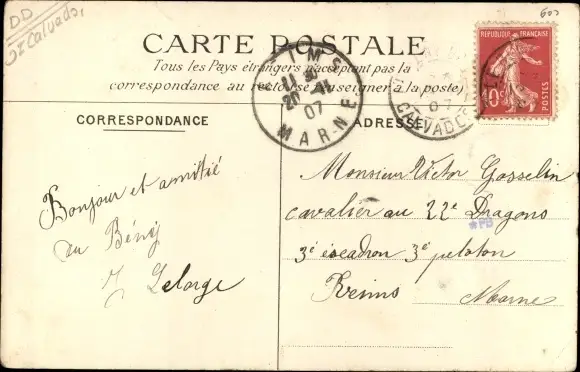 DD
St Calvados
600
CARTE POSTALE
Tous les Pays étrangers n'acceptent pas la
correspondance au recto (se renseigner à la poste)
REIMS
MARNE
11
20 - 11
07
CALVADOS
07
REPUBLIQUE FRANÇAISE
10c
POSTES
CORRESPONDANCE
Bonjour et amitié
au Bény
Lelarge
ADRESSE
Monsieur Victor Gosselin
cavalier au 22e Dragons
*PD
3e escadron 3e peloton
Reims Marne